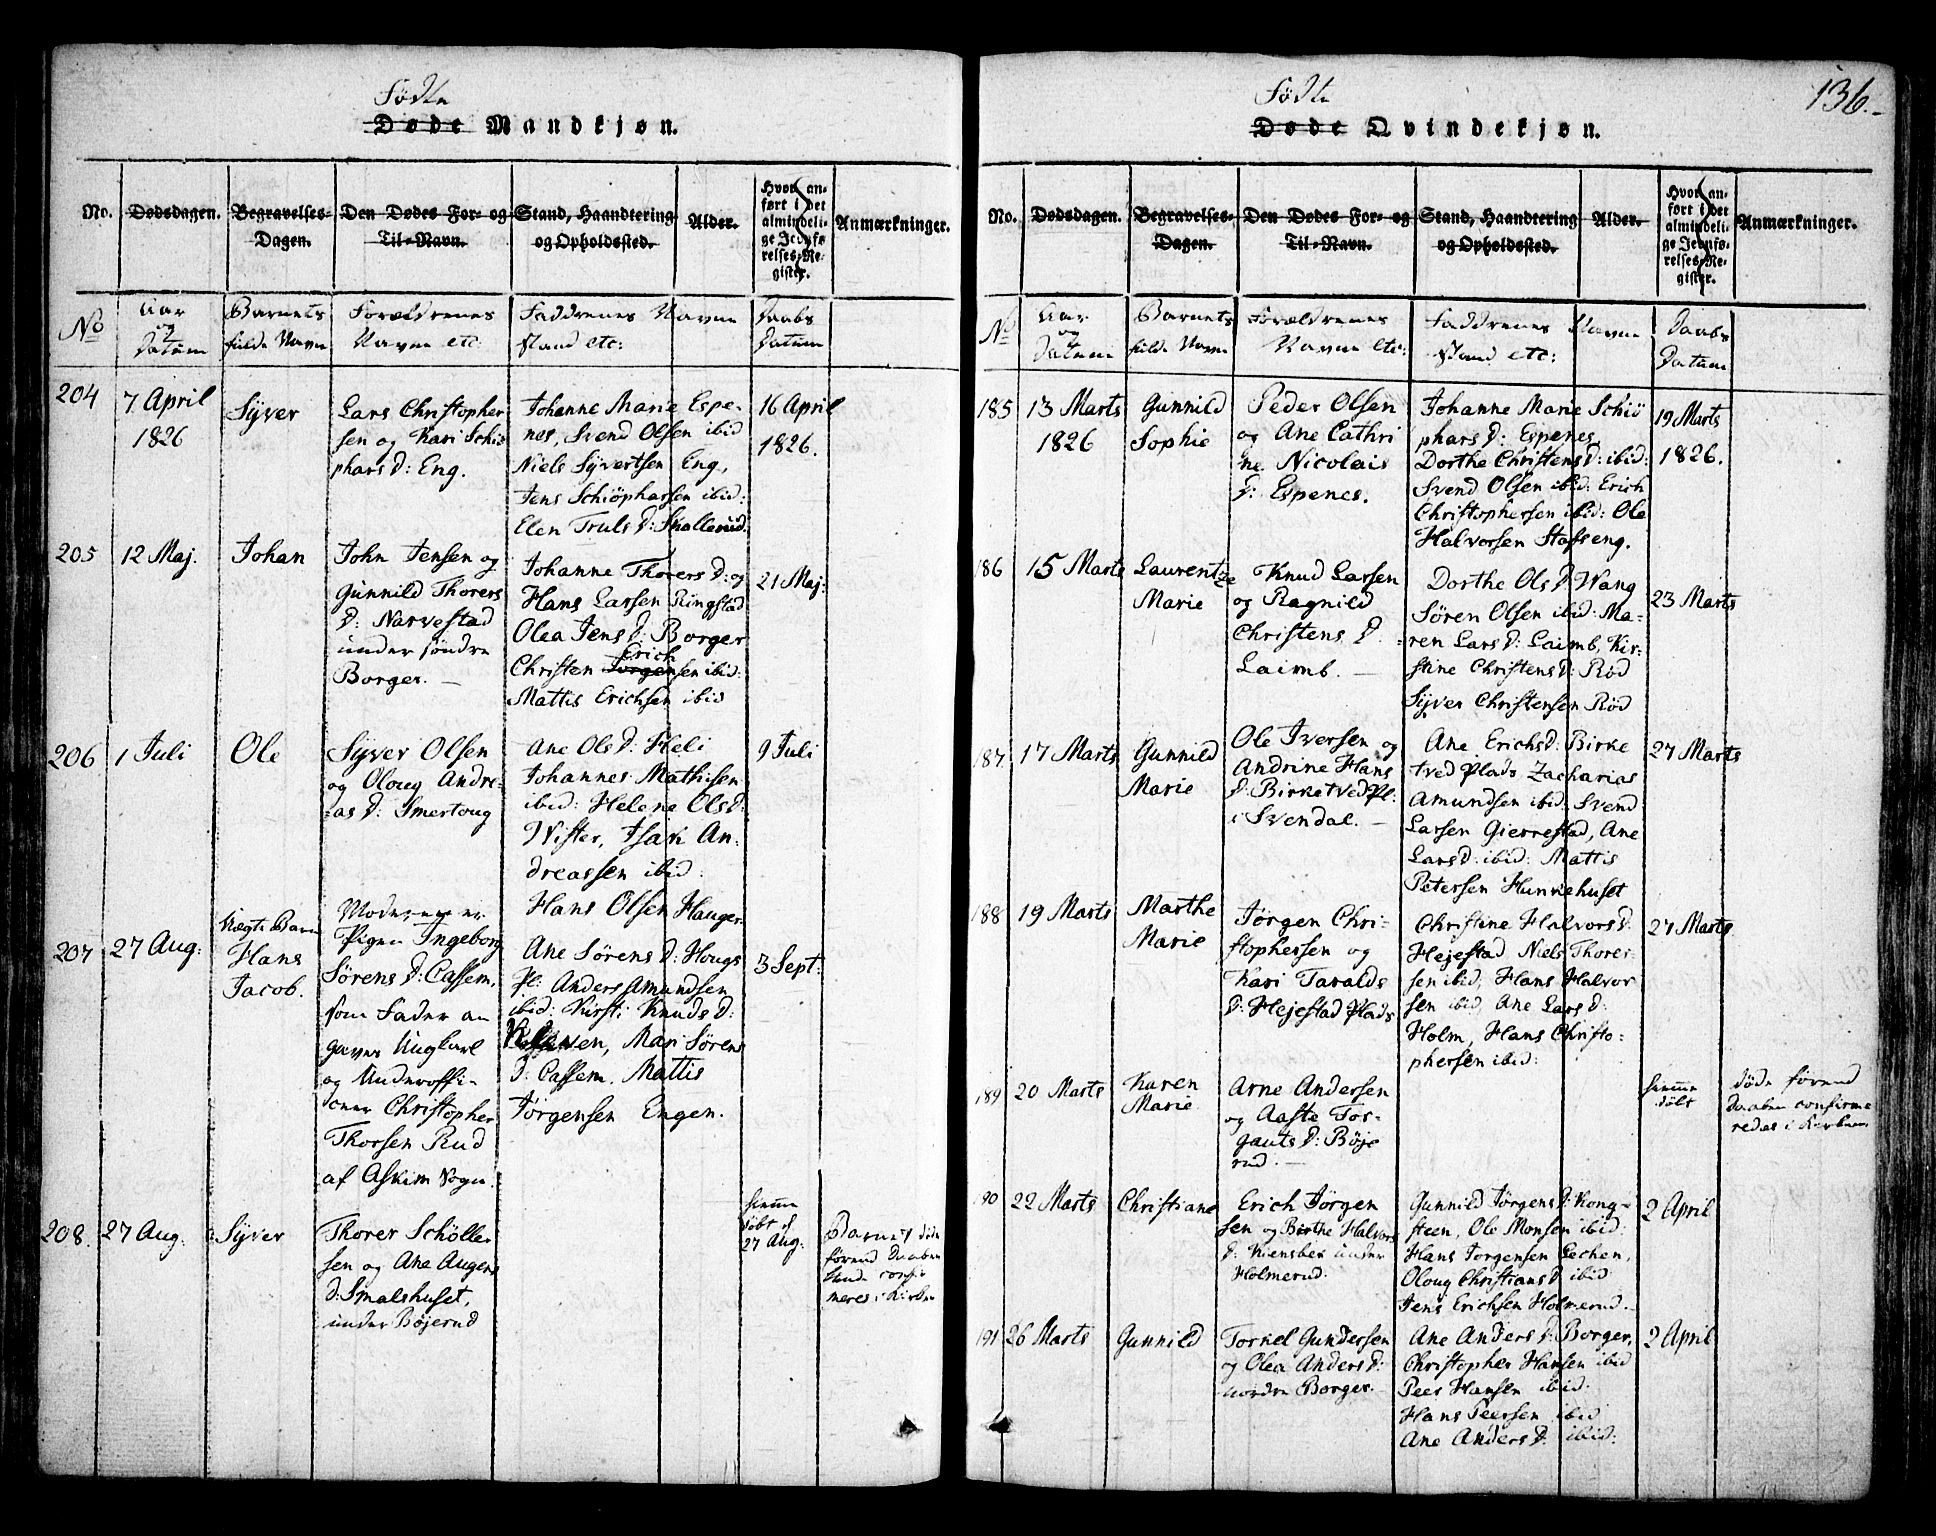 Fødte
Døde Mandkjøn.
No. Dødsdagen. Begravelses-Dagen. Den Dødes For- og Til-Navn. Stand, Haandtering og Opholdssted. Alder. Hvor anført i det almindelige Jevnførelses-Register. Anmærkninger.
No Aar og Datum Barnets fulde Navn Forældrenes Navne etc. Faddrenes Navne Stand etc: Daabs Datum
204
7 April
1826
Syver
Lars Christopher
sen og Kari Schiø
phars D: Eng.
Johanne Marie Espe-
nes, Svend Olsen ibid
Niels Syvertsen Eng,
Jens Schiöpharsen ibid:
Elen Truls D: Skallerud.
16 April
1826.
205
12 Maj.
Johan
John Jensen og
Gunnild Thorers
D: Narvestad
under søndre
Borger. —
Johanne Thorers D: og
Hans Larsen Ringstad
Olea Jens D: Borger
Erich
Christen Jørgensen ibid:
Mattis Erichsen ibid
21 Maj:
206
1 Juli
Ole
Syver Olsen
og Oloug Andre-
as D: Smertoug
Ane Ols D: Heli
Johannes Mathisen
ibid: Helene Ols D:
Wister, Isak An-
dreassen ibid:
Hans Olsen Hauger
9 Juli
207
27 Aug:
Uægte Barn
Hans
Jacob.
Moderen er
Pigen Ingeborg
Sørens D: Cassem,
som Fader an
gaves Ungkarl
og Underoffi-
ceer Christopher
Thorsen Rud
af Askim Sogn.
Ane Sørens D: Hougs
Pl: Anders Amundsen
ibid: Kirsti Knuds D:
Mari Sørens
D: Cassem. Mattis
Jørgensen Engen.
3 Sept:
208.
27 Aug:
Syver
Thorer Schöller
sen og Ane Augens
D: Smalshuset,
under Bøjerud
hiemme
døbt d
27 Aug:
Barnet døde
førend Daaben
kunde confir
meres i Kirken
136.-
Fødte
Døde Qvindekjøn.
No. Dødsdagen. Begravelses-Dagen. Den Dødes For- og Til-Navn. Stand, Haandtering og Opholdssted. Alder. Hvor anført i det almindelige Jevnførelses-Register. Anmærkninger.
No Aar og Datum Barnets fulde Navn Forældrenes Navne etc: Faddrenes Navne Stand etc: Daabs Datum
185
13 Marts
1826
Gunnild
Sophie
Peder Olsen
og Ane Cathri
ne Nicolais
D: Espenes.
Johanne Marie Schiö
phars D: Espenes
Dorthe Christens D: ibid:
Svend Olsen ibid: Erich
Christophersen ibid: Ole
Halvorsen Stafseng.
19 Marts
1826.
186
15 Marts
Laurentze
Marie
Knud Larsen
og Ragnild
Christens D.
Laimb. —
Dorthe Ols D: Wang
Søren Olsen ibid: Ma-
ren Lars D: Laimb, Kir-
stine Christens D: Rød
Syver Christensen Rød
23 Marts
187
17 Marts
Gunnild
Marie
Ole Iversen og
Andrine Hans
D: Birketved Pl:
i Svendal. —
Ane Erichs D: Birke
tved Plads Zacharias
Amundsen ibid: Svend
Larsen Gierrestad, Ane
Lars D: ibid: Mattis
Petersen Hunnehuset
27 Marts
188
19 Marts
Marthe
Marie
Jørgen Chri-
stophersen og
Kari Taralds
D: Hejestad Plads
Christine Halvors D:
Hejestad Niels Thorer-
sen ibid, Hans Halvor
sen ibid, Ane Lars D:
Holm, Hans Christo-
phersen ibid:
27 Marts
189
20 Marts
Karen
Marie
Arne Andersen
og Aaste Tor-
gauts D: Bøje
rud. —
hiemme
døbt
døde førend
Daaben confirme
redes i Kirken
190
22 Marts
Christiane
Erich Jørgen
sen og Birthe Halvors
D: Kiensbek under
Holmerud.
Gunnild Jørgens D: Kong-
steen, Ole Monsen ibid:
Hans Jørgensen Lechen,
Oloug Christians D: ibid:
Jens Erichsen Holmerud.
2 April
191
26 Marts
Gunnild
Torkel Gundersen
og Olea Anders D:
nordre Borger.
Ane Anders D: Borger,
Christopher Hansen ibid
Peer Hansen ibid:
Hans Peersen ibid
Ane Anders D: ibid:
2 April